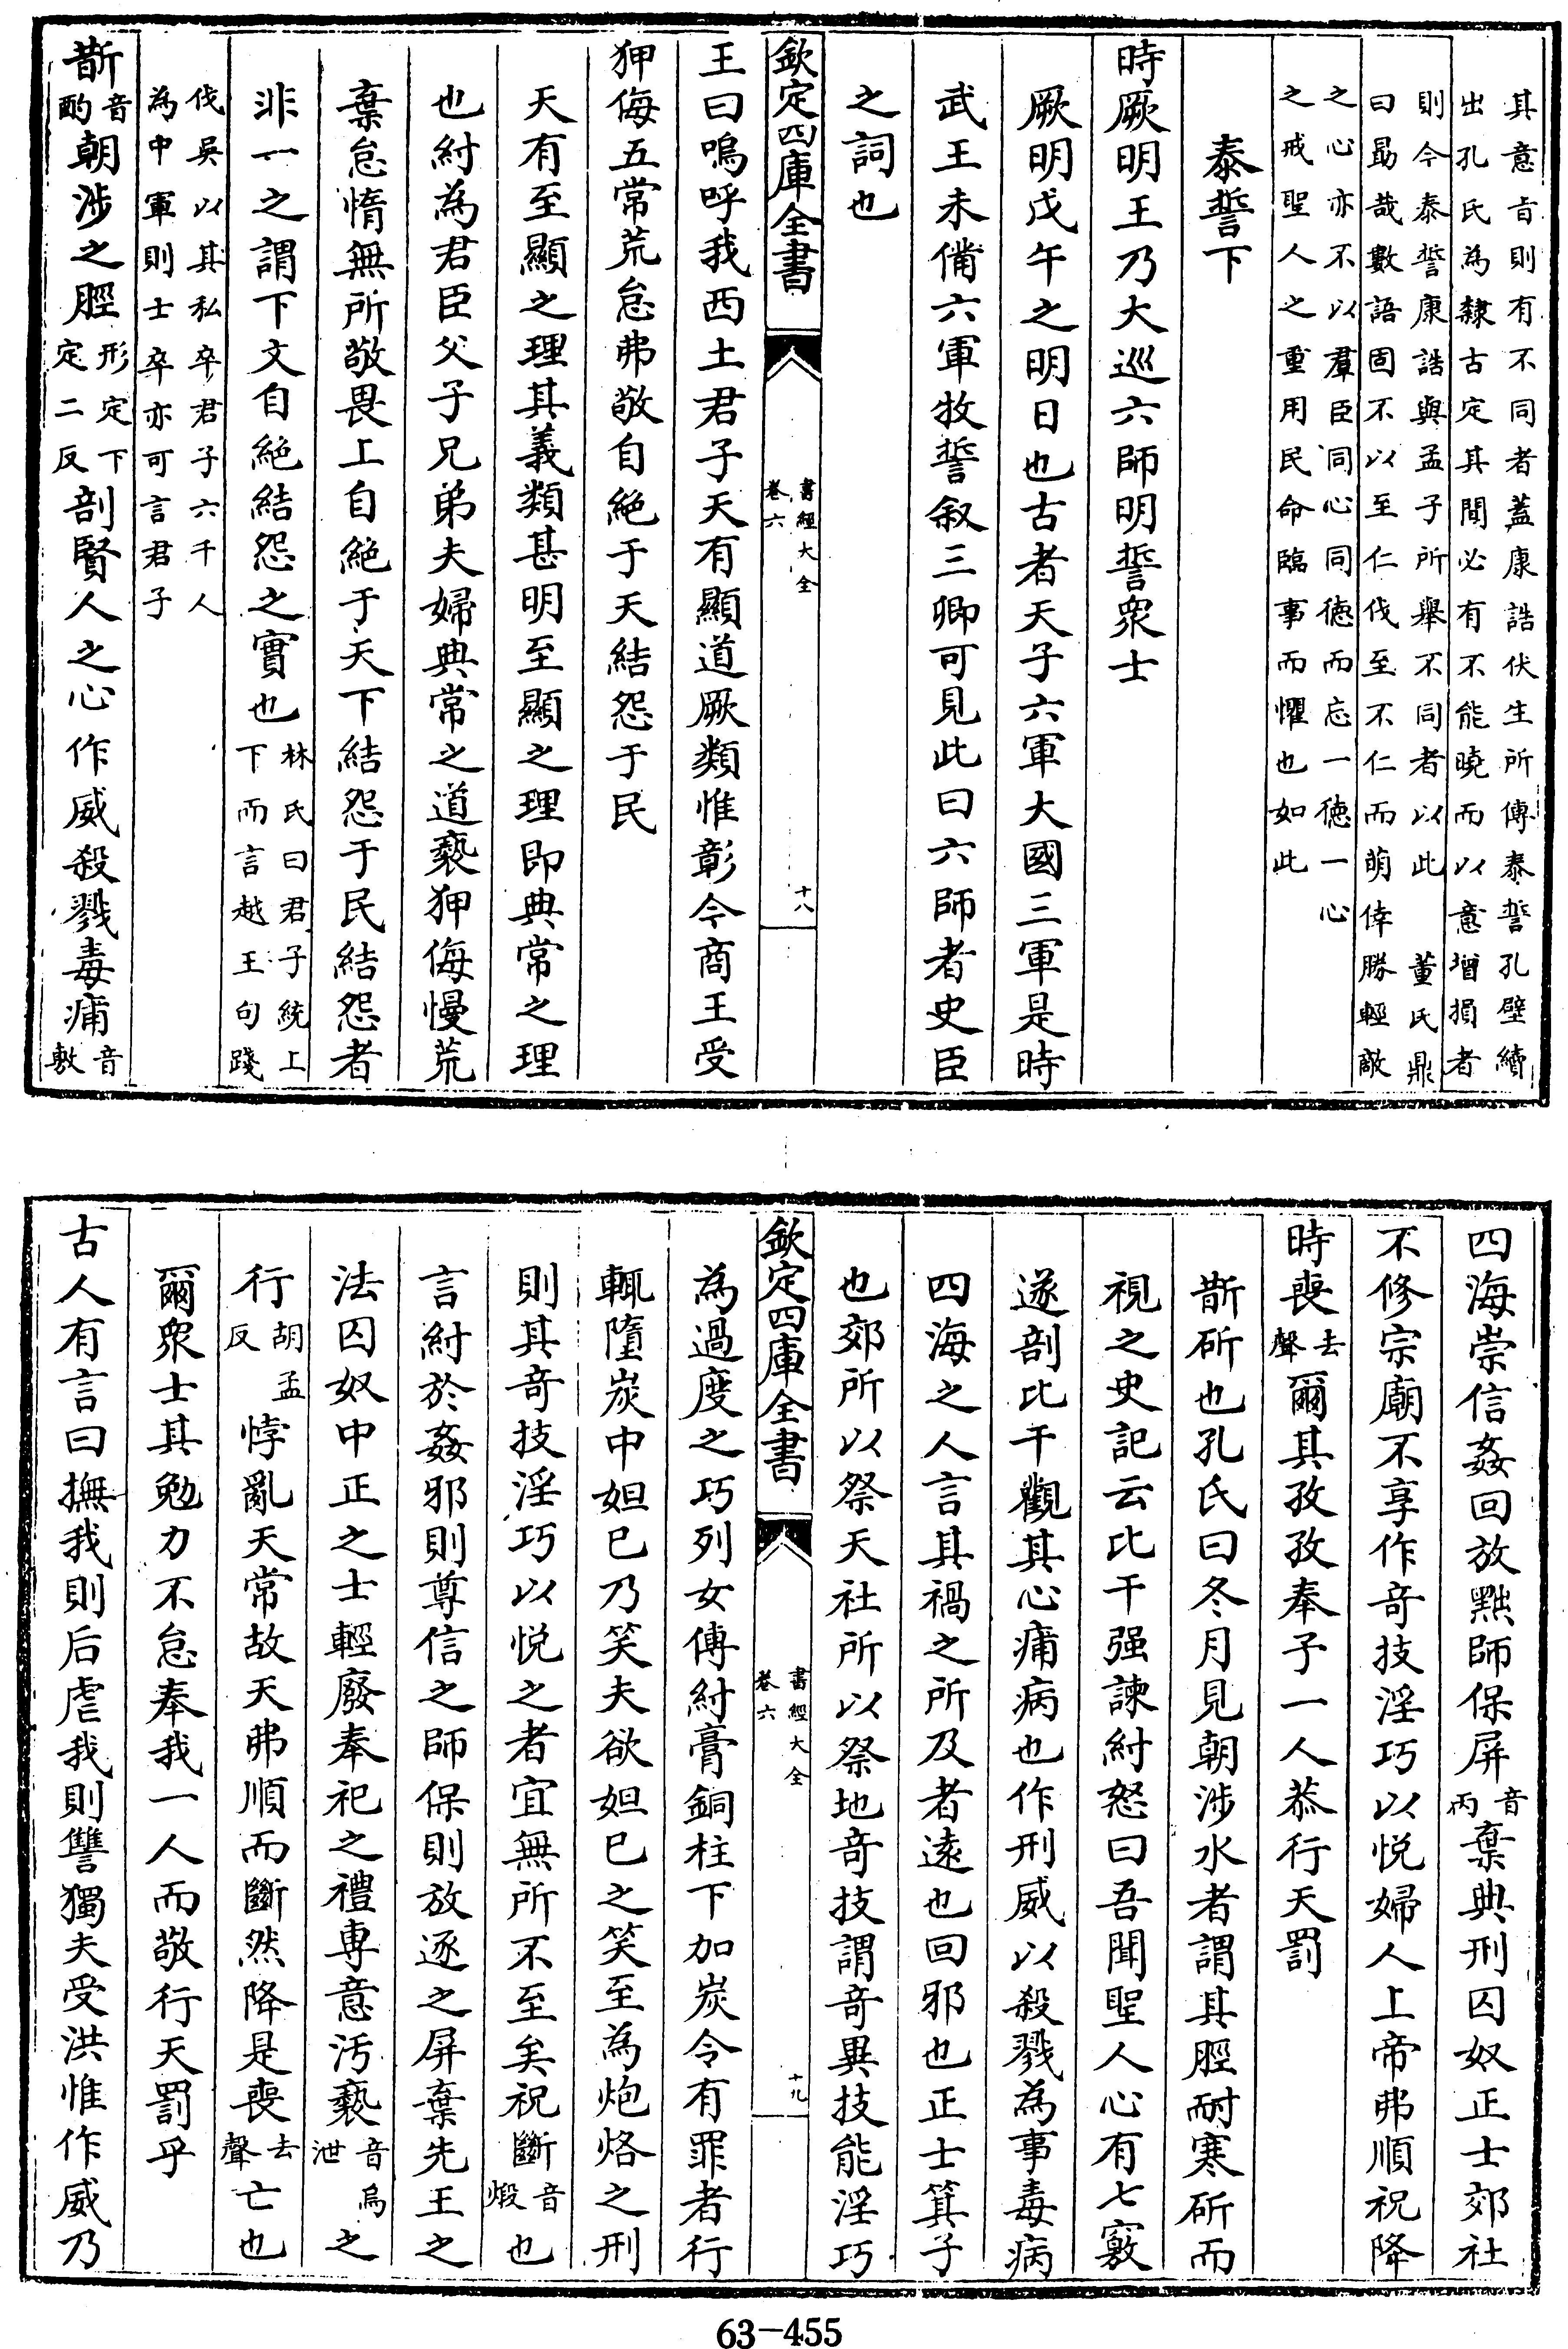 其意㫖則有不同者蓋康誥伏生所傳泰誓孔壁續
出孔氏為隸古定其間必有不能曉而以意增損者
則今泰誓康誥與孟子所舉不同者以此　董氏鼎
曰勗哉數語固不以至仁伐至不仁而萌倖勝輕敵
之心亦不以羣臣同心同徳而忘一徳一心
之戒聖人之重用民命臨事而懼也如此
泰誓下
時厥明王乃大巡六師明誓衆士
厥明戊午之明日也古者天子六軍大國三軍是時
武王未備六軍牧誓叙三卿可見此曰六師者史臣
之詞也
欽定四庫全書
書經大全
卷六
十八
王曰嗚呼我西土君子天有顯道厥類惟彰今商王受
狎侮五常荒怠弗敬自絶于天結怨于民
天有至顯之理其義類甚明至顯之理即典常之理
也紂為君臣父子兄弟夫婦典常之道褻狎侮慢荒
棄怠惰無所敬畏上自絶于天下結怨于民結怨者
非一之謂下文自絶結怨之實也林氏曰君子統上
下而言越王句踐
伐吳以其私卒君子六千人
為中軍則士卒亦可言君子
斮音
酌朝涉之脛形定下
定二反剖賢人之心作威殺戮毒痡音
敷
四海崇信姦回放黜師保屏音
丙棄典刑囚奴正士郊社
不修宗廟不享作竒技淫巧以悦婦人上帝弗順祝降
時喪去
聲爾其孜孜奉予一人恭行天罰
斮斫也孔氏曰冬月見朝涉水者謂其脛耐寒斫而
視之史記云比干强諫紂怒曰吾聞聖人心有七竅
遂剖比干觀其心痡病也作刑威以殺戮為事毒病
四海之人言其禍之所及者遠也回邪也正士箕子
也郊所以祭天社所以祭地竒技謂竒異技能淫巧
欽定四庫全書
書經大全
卷六
十九
為過度之巧列女傳紂膏銅柱下加炭令有罪者行
輒墮炭中妲己乃笑夫欲妲己之笑至為炮烙之刑
則其竒技淫巧以悦之者宜無所不至矣祝斷音
煅也
言紂於姦邪則尊信之師保則放逐之屏棄先王之
法囚奴中正之士輕廢奉祀之禮專意汚褻音烏
泄之
行胡孟
反悖亂天常故天弗順而斷然降是喪去
聲亡也
爾衆士其勉力不怠奉我一人而敬行天罰乎
古人有言曰撫我則后虐我則讐獨夫受洪惟作威乃
63-455